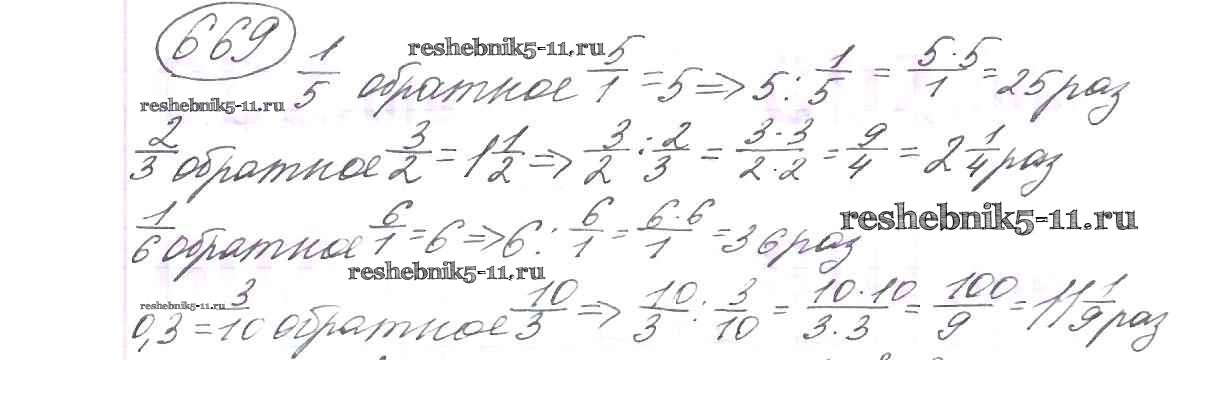 669
reshebnik5-11.ru
1/5 обратное 5/1 = 5 => 5 : 1/5 = 5·5/1 = 25 раз
reshebnik5-11.ru
2/3 обратное 3/2 = 1 1/2 => 3/2 : 2/3 = 3·3/2·2 = 9/4 = 2 1/4 раз
1/6 обратное 6/1 = 6 => 6 : 6/1 = 6·6/1 = 36 раз
reshebnik5-11.ru
reshebnik5-11.ru
reshebnik5-11.ru
0,3 = 3/10 обратное 10/3 => 10/3 : 3/10 = 10·10/3·3 = 100/9 = 11 1/9 раз